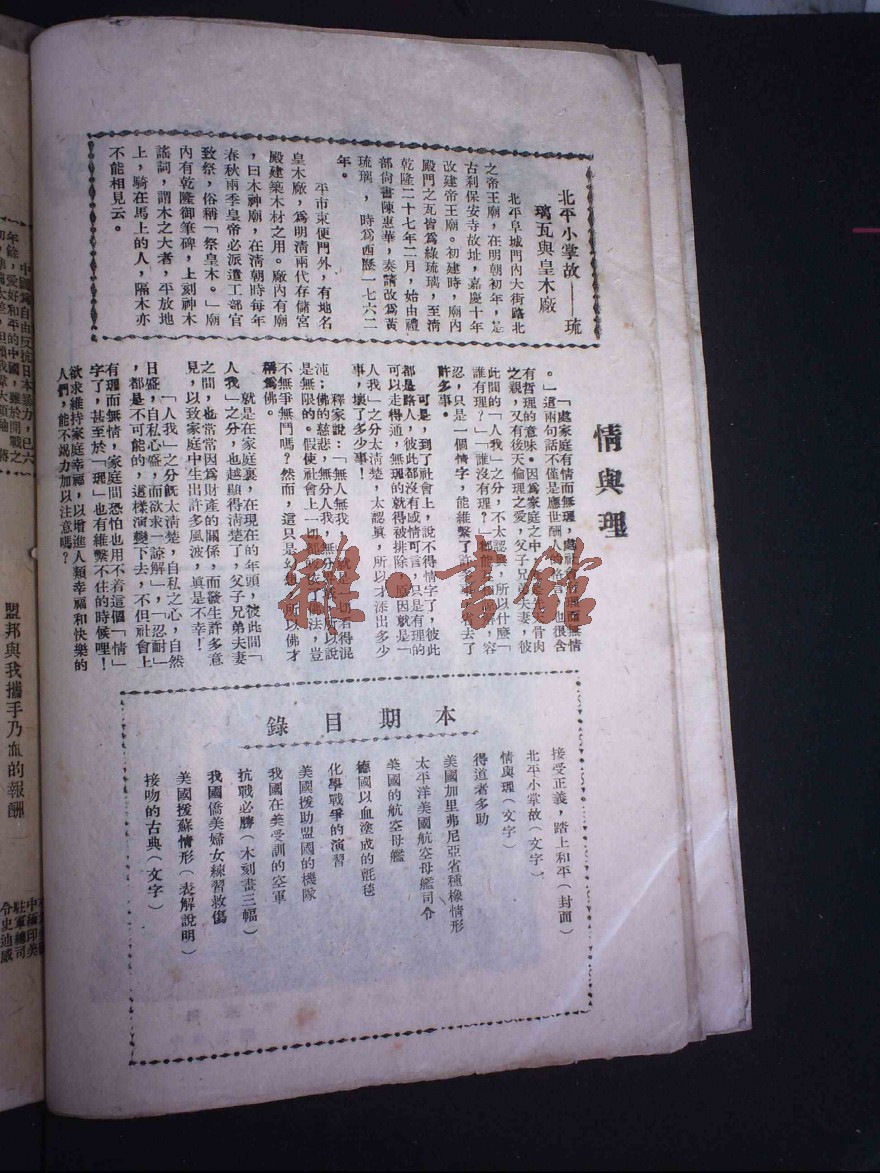 北平小掌故——琉
璃瓦與皇木廠
北平阜城門內大街路北
之帝王廟，在明朝初年，是
古刹保安寺故址，嘉慶十年
改建帝王廟。初建時，廟內
殿門之瓦皆爲綠琉璃，至清
乾隆二十七年二月，始由禮
部尙書陳惠華，奏請改爲黃
琉璃，時爲西歷一七六二
年。
平市東便門外，有地名
皇木廠，爲明清兩代存儲宮
殿建築木材之用。廠內有廟
，曰木神廟，在清朝時每年
春秋兩季皇帝必派遣工部官
致祭，俗稱「祭皇木。」廟
內有乾隆御筆碑，上刻神木
謠詞，謂木之大者，平放地
上，騎在馬上的人，隔木亦
不能相見云。
情與理
「處家庭有情而無理，處社會有理而無情
。」這兩句話不僅是應世酬人的格言，也很含
有哲理的意味。因爲家庭之中，先天骨肉
之親，又有後天倫理之愛，父子兄弟夫妻，彼
此間的「人我」之分，不太認真，所以什麼「
誰有理？」「誰沒有理？」都能互相諒解，容
忍，只是一個情字，能維繫了許多事，省去了
許多事。
可是，到了社會上，說不得情字了，彼此
都是路人，彼此都沒有感情可言，只是有理的
可以走得通，無理的就得被排除，原因就是「
人我」之分太清楚，太認眞，所以才添出多少
事，壞了多少事！
釋家說：「無人無我」就是一切看得混
沌；佛的慈悲，無分人我，無分
是無限的。假使社會上一切都皈依佛法，豈
不無爭無鬥嗎？然而，這只是幻想，所以佛才
稱爲佛。
就是在家庭裏，在現在的年頭，彼此間「
人我」之分，也越顯得清楚了，父子兄弟夫妻
之間，也常常因爲財產的關係，而發生許多意
見，以致家庭中生出許多風波，眞是不幸！
「人我」之分旣太清楚，自私之心，自然
日盛，自私心盛，而欲求一「諒解」，「忍耐」
，都是不可能的，這樣演變下去，不但社會上
有理而無情，家庭間恐怕也用不着這個「情」
字了，甚至於「理」也有維繫不住的時候哩！
欲求維持家庭幸福，以增進人類幸福和快樂的
人們，能不竭力加以注意嗎？
本期目錄
接受正義，踏上和平（封面）
北平小掌故（文字）
情與理（文字）
得道者多助
美國加里弗尼亞省種橡情形
太平洋美國航空母艦司令
英國的航空母艦
德國以血塗成的氈毯
化學戰爭的演習
美國援助盟國的機隊
我國在美受訓的空軍
抗戰必勝（木刻畫三幅）
我國僑美婦女練習救傷
美國援蘇情形（表解說明）
接吻的古典（文字）
中國爲自由反抗日本暴力，已六
年餘，愛好和平的中國，雖於開戰之
盟邦與我攜手乃血的報酬
中緬印美
駐軍總司
令史迪威
雜·書館